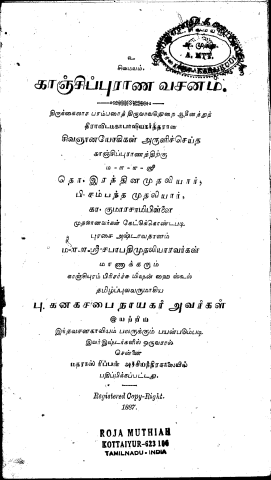 உ
சிவமயம்.
காஞ்சிப்புராண வசனம்.
திருக்கைலாச பரம்பரைத் திருவாவடுதுறை ஆதீனத்துத்
திராவிடமகாபாஷியகர்த்தரான
சிவஞானயோகிகள் அருளிச்செய்த
காஞ்சிப்புராணத்திற்கு
ம-ள-ள-ஸ்ரீ
தொ. இரத்தினமுதலியார்,
பி. சம்பந்த முதலியார்,
கா. குமாரசாமிபிள்ளை
முதலானவர்கள் கேட்டுக்கொண்டபடி
புரசை அஷ்டாவதானம்
ம-ள-ள-ஸ்ரீ-சபாபதிமுதலியாரவர்கள்
மாணாக்கரும்
காஞ்சிபுரம் பிரிசர்ச்சு மிஷன் ஹை ஸ்கூல்
தமிழ்ப்புலவருமாகிய
பு. கனகசபை நாயகர் அவர்கள்
இயற்றிய
இந்தவசனகாவியம் பலருக்கும் பயன்படும்படி
இவர் இஷ்டர்களில் ஒருவரால்
சென்னை
மதராஸ் ரிப்பன் அச்சியந்திரசாலையில்
பதிப்பிக்கப்பட்டது.
Registered Copy-Right.
1887.
ROJA MUTHIAH
KOTTAIYUR-623 106
TAMILNADU - INDIA